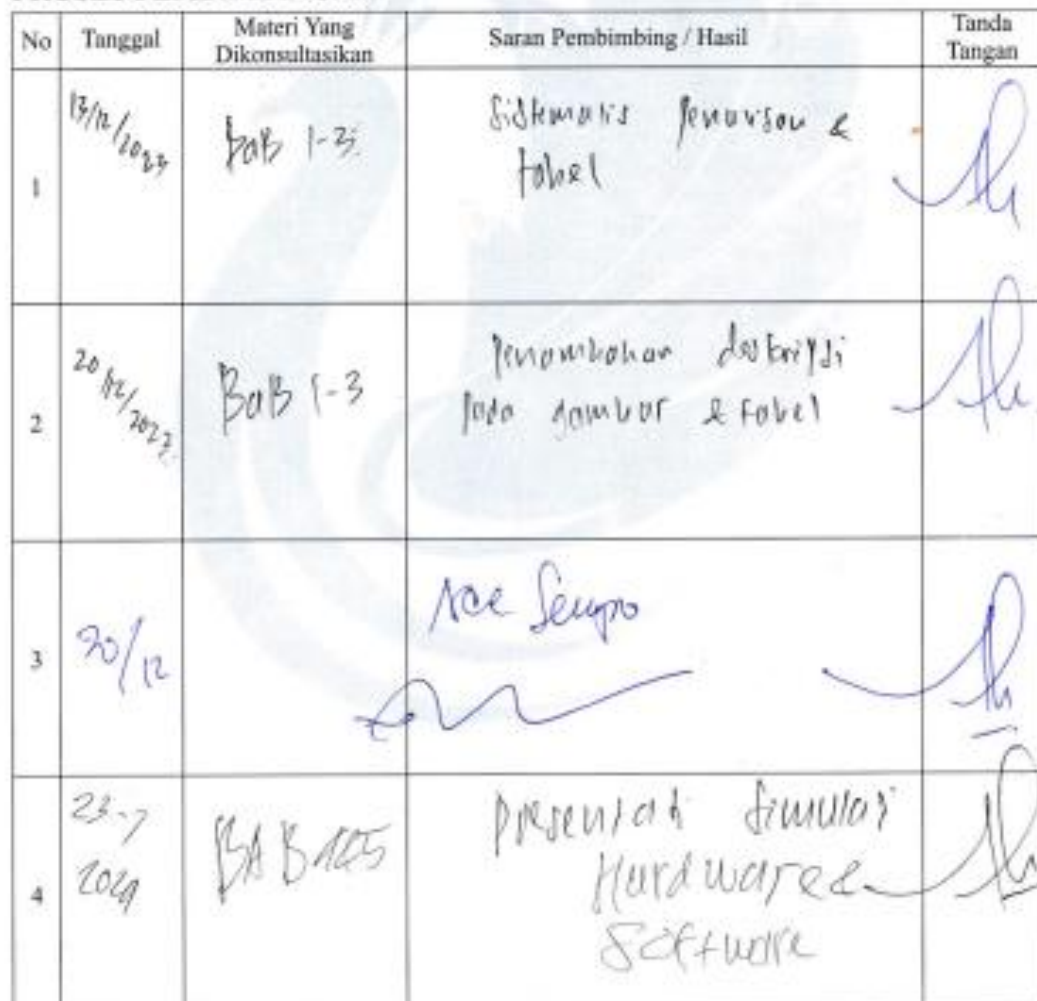 No Tanggal Materi Yang Dikonsultasikan Saran Pembimbing / Hasil Tanda Tangan
1 13/12/2023 BaB 1-3 Sistematis Penulisan &
tabel
2 20/12/2023 BaB 1-3 Penambahan deskripsi
pada gambar & tabel
3 20/12 Acc Sempro
4 23-7 2024 BAB 1-5 Presentasi Simulasi
Hardware &
Software